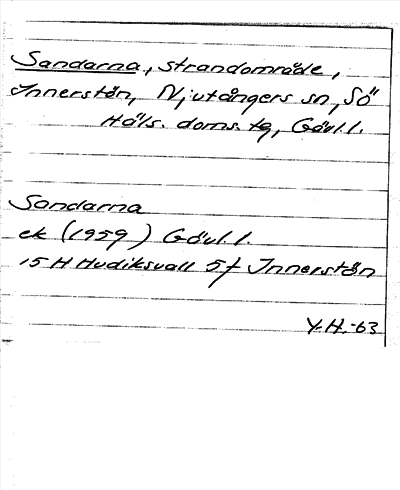 Sandarna, strandområde,
Innerstön, Njutångers sn, Sö
Häls. doms. tg, Gävl.l.
Sandarna
ek (1959) Gävl.l.
15 H Hudiksvall 5f Innerstön
Y.H.-63